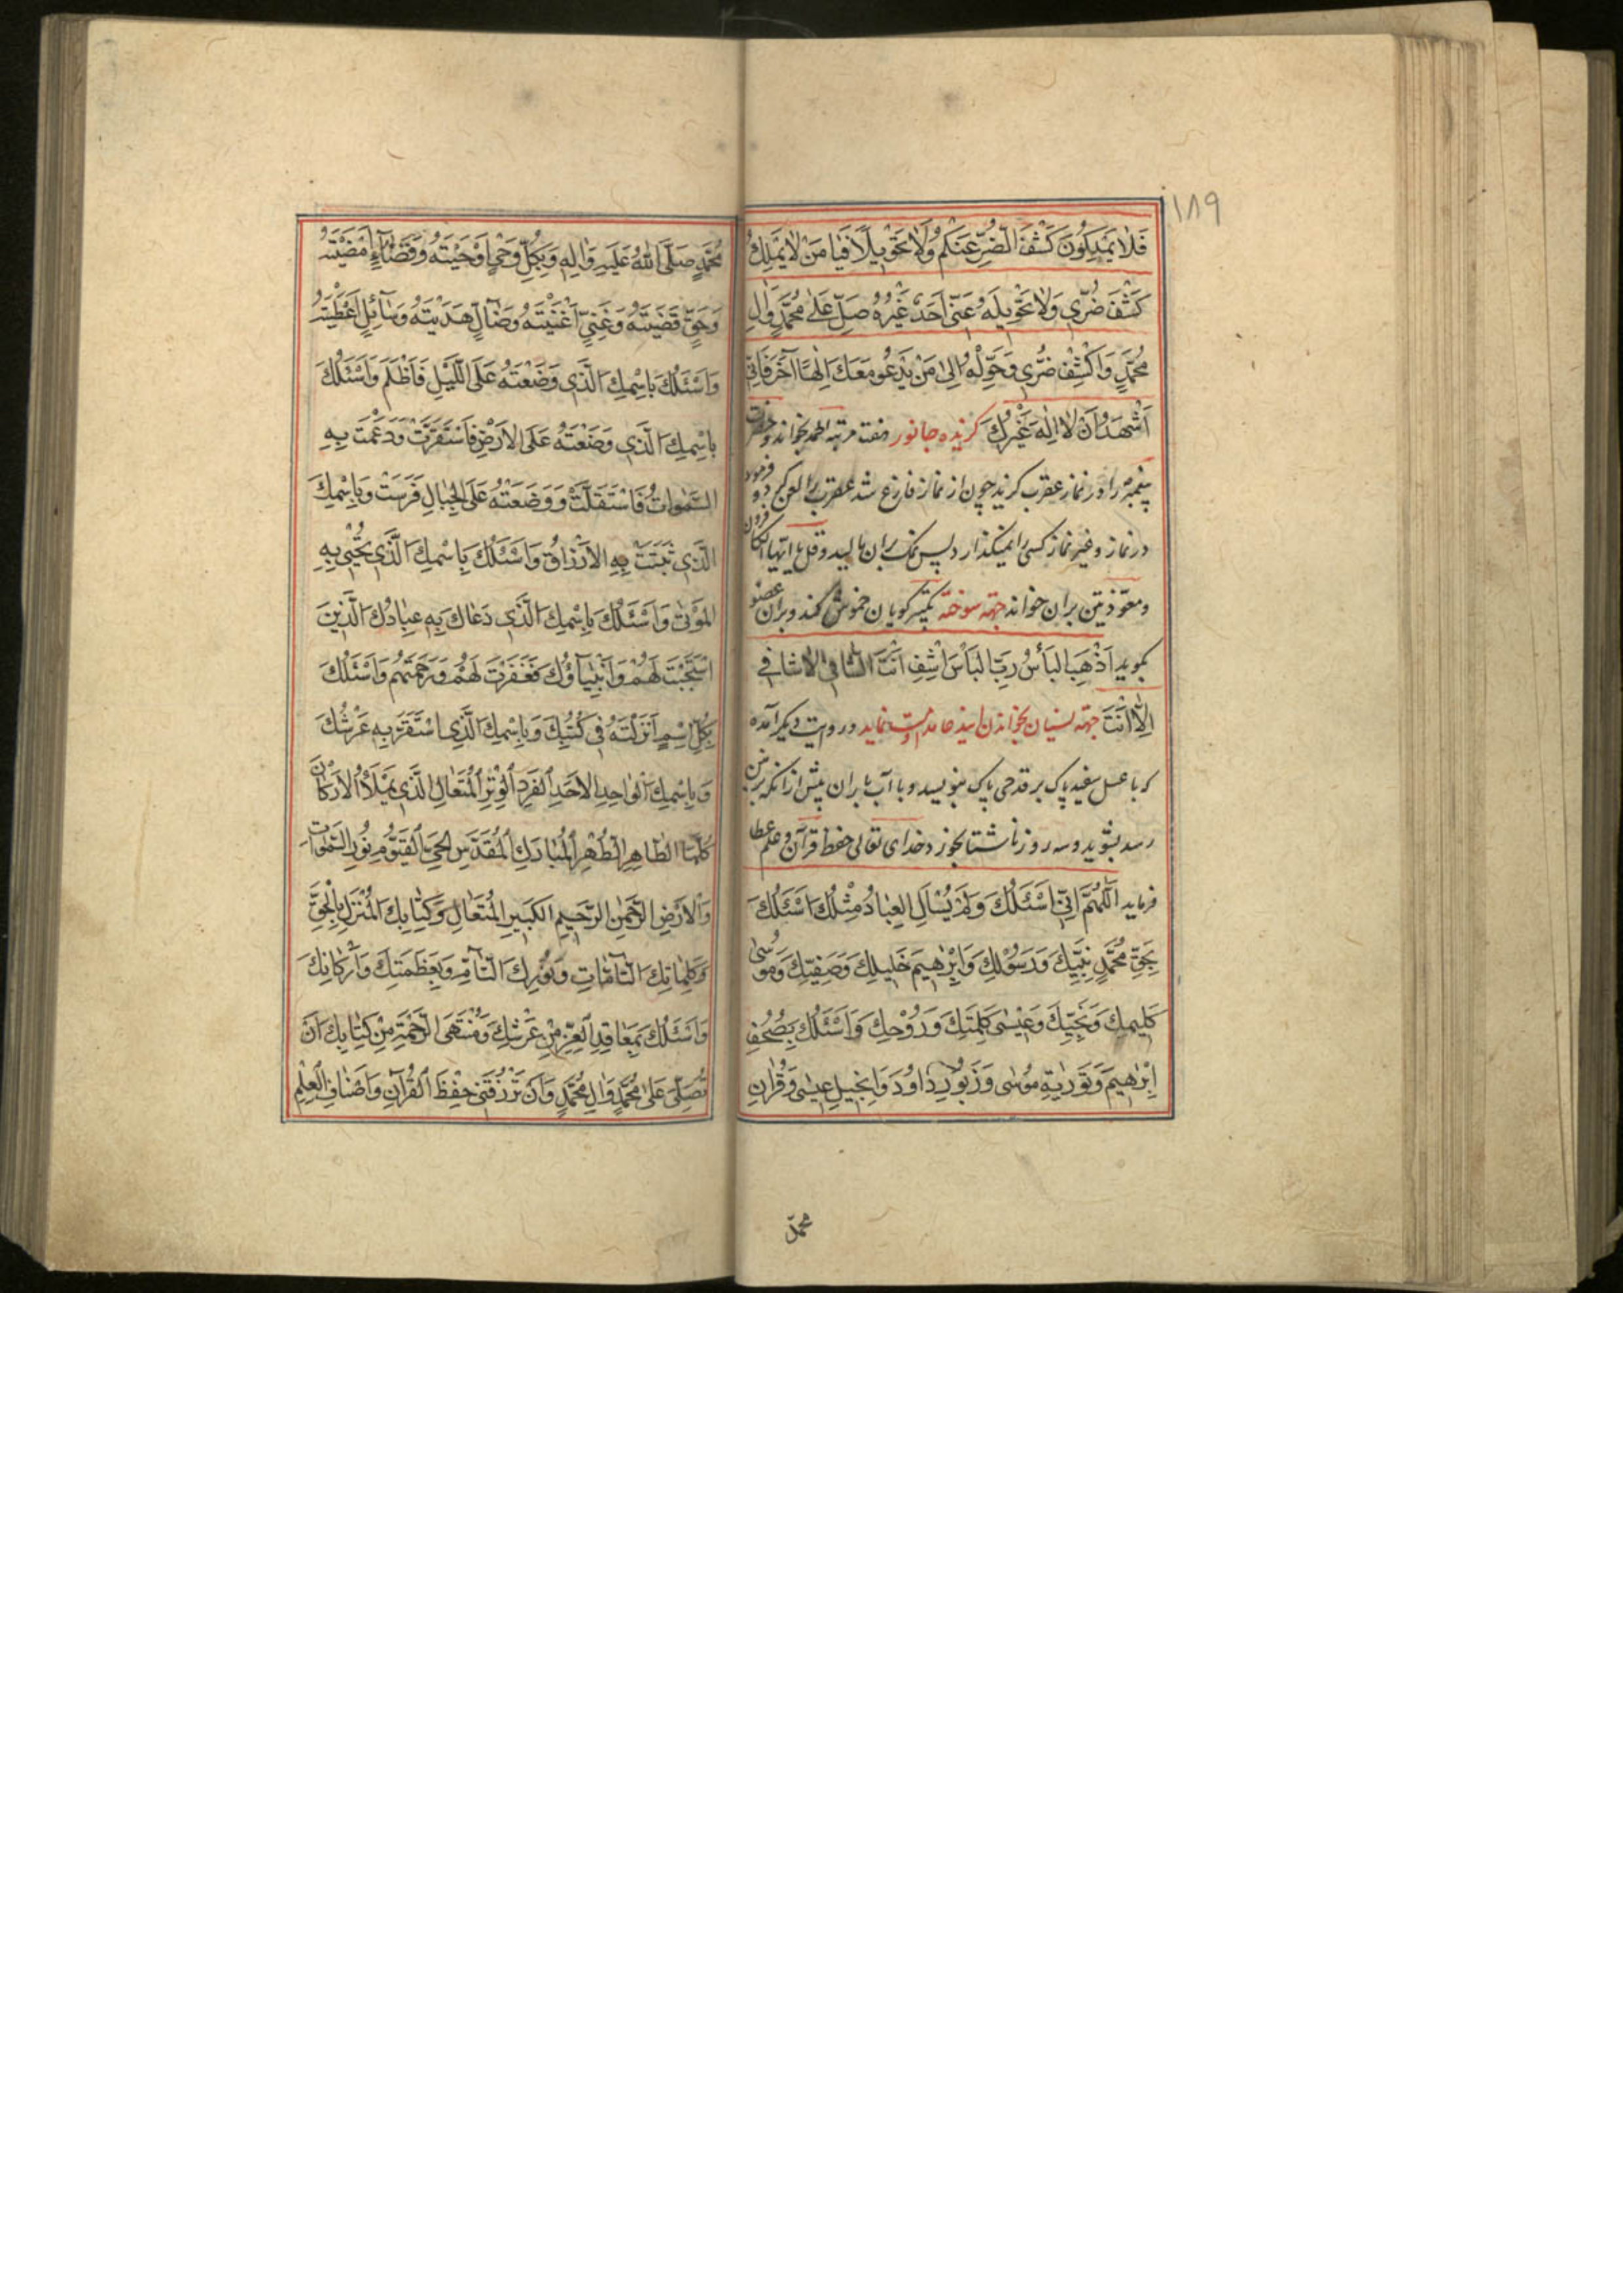 ۱۸۹
فَلَا يَمْلِكُونَ كَشْفَ الضُّرِّ عَنْكُمْ وَلَا تَحْوِيلًا فَيَا مَنْ لَا يَمْلِكُ
كَشْفَ ضُرِّي وَلَا تَحْوِيلَهُ عَنِّي أَحَدٌ غَيْرُهُ صَلِّ عَلَى مُحَمَّدٍ وَآلِ
مُحَمَّدٍ وَاكْشِفْ ضُرِّي وَحَوِّلْهُ إِلَى مَنْ يَدْعُو مَعَكَ إِلٰهًا آخَرَ فَإِنِّي
أَشْهَدُ أَنْ لَا إِلٰهَ غَيْرُكَ گزنده جانور هفت مرتبه الحمد بخواند و حضرت
پیغمبر را در نماز عقرب گزید چون از نماز فارغ شد عقرب را لعن کرد و فرمود
در نماز و غیر نماز کسی را نمیگذارد پس نمک بران مالید و قل یا ایها الکافرون
و معوذتین بران خواند جهة سوخته تکبیر گویان خموش کند و بران عضو
بگوید أَذْهِبِ الْبَأْسَ رَبَّ الْبَأْسِ اشْفِ أَنْتَ الشَّافِي لَا شَافِيَ
إِلَّا أَنْتَ جهة نسیان بخواندن این دعا مداومت نماید و در روایت دیگر آمده
که با عسل سفید پاک بر قدحی پاک بنویسد و با آب باران پیش از آنکه بر زمین
رسد بشوید و سه روز ناشتا بخورد خدای تعالی حفظ قرآن و علم عطا
فرماید اَللّٰهُمَّ إِنِّي أَسْئَلُكَ وَلَمْ يُسْأَلِ الْعِبَادُ مِثْلَكَ أَسْئَلُكَ
بِحَقِّ مُحَمَّدٍ نَبِيِّكَ وَرَسُولِكَ وَإِبْرٰهِيمَ خَلِيلِكَ وَصَفِيِّكَ وَمُوسٰى
كَلِيمِكَ وَنَجِيِّكَ وَعِيسٰى كَلِمَتِكَ وَرُوحِكَ وَأَسْئَلُكَ بِصُحُفِ
إِبْرٰهِيمَ وَتَوْرٰيةِ مُوسٰى وَزَبُورِ دَاوُدَ وَإِنْجِيلِ عِيسٰى وَقُرْآنِ
محمد
مُحَمَّدٍ صَلَّى اللهُ عَلَيْهِ وَآلِهِ وَبِكُلِّ وَحْيٍ أَوْحَيْتَهُ وَقَضَاءٍ أَمْضَيْتَهُ
وَحَقٍّ قَضَيْتَهُ وَغَنِيٍّ أَغْنَيْتَهُ وَضَالٍّ هَدَيْتَهُ وَسَائِلٍ أَعْطَيْتَهُ
وَأَسْئَلُكَ بِاسْمِكَ الَّذِي وَضَعْتَهُ عَلَى اللَّيْلِ فَأَظْلَمَ وَأَسْئَلُكَ
بِاسْمِكَ الَّذِي وَضَعْتَهُ عَلَى الْأَرْضِ فَاسْتَقَرَّتْ وَدَعَمْتَ بِهِ
السَّمٰوَاتِ فَاسْتَقَلَّتْ وَوَضَعْتَهُ عَلَى الْجِبَالِ فَرَسَتْ وَبِاسْمِكَ
الَّذِي بَثَثْتَ بِهِ الْأَرْزَاقَ وَأَسْئَلُكَ بِاسْمِكَ الَّذِي تُحْيِي بِهِ
الْمَوْتٰى وَأَسْئَلُكَ بِاسْمِكَ الَّذِي دَعَاكَ بِهِ عِبَادُكَ الَّذِينَ
اسْتَجَبْتَ لَهُمْ وَأَنْبِيَاؤُكَ فَغَفَرْتَ لَهُمْ وَرَحِمْتَهُمْ وَأَسْئَلُكَ
بِكُلِّ اسْمٍ أَنْزَلْتَهُ فِي كُتُبِكَ وَبِاسْمِكَ الَّذِي اسْتَقَرَّ بِهِ عَرْشُكَ
وَبِاسْمِكَ الْوَاحِدِ الْأَحَدِ الْفَرْدِ الْوِتْرِ الْمُتَعَالِ الَّذِي يَمْلَأُ الْأَرْكَانَ
كُلَّهَا الطَّاهِرِ الطُّهْرِ الْمُبَارَكِ الْمُقَدَّسِ الْحَيِّ الْقَيُّومِ نُورِ السَّمٰوَاتِ
وَالْأَرْضِ الرَّحْمٰنِ الرَّحِيمِ الْكَبِيرِ الْمُتَعَالِ وَكِتَابِكَ الْمُنْزَلِ بِالْحَقِّ
وَكَلِمَاتِكَ التَّامَّاتِ وَنُورِكَ التَّامِّ وَبِعَظَمَتِكَ وَأَرْكَانِكَ
وَأَسْئَلُكَ بِمَعَاقِدِ الْعِزِّ مِنْ عَرْشِكَ وَمُنْتَهَى الرَّحْمَةِ مِنْ كِتَابِكَ أَنْ
تُصَلِّيَ عَلٰى مُحَمَّدٍ وَآلِ مُحَمَّدٍ وَأَنْ تَرْزُقَنِي حِفْظَ الْقُرْآنِ وَأَصْنَافَ الْعِلْمِ